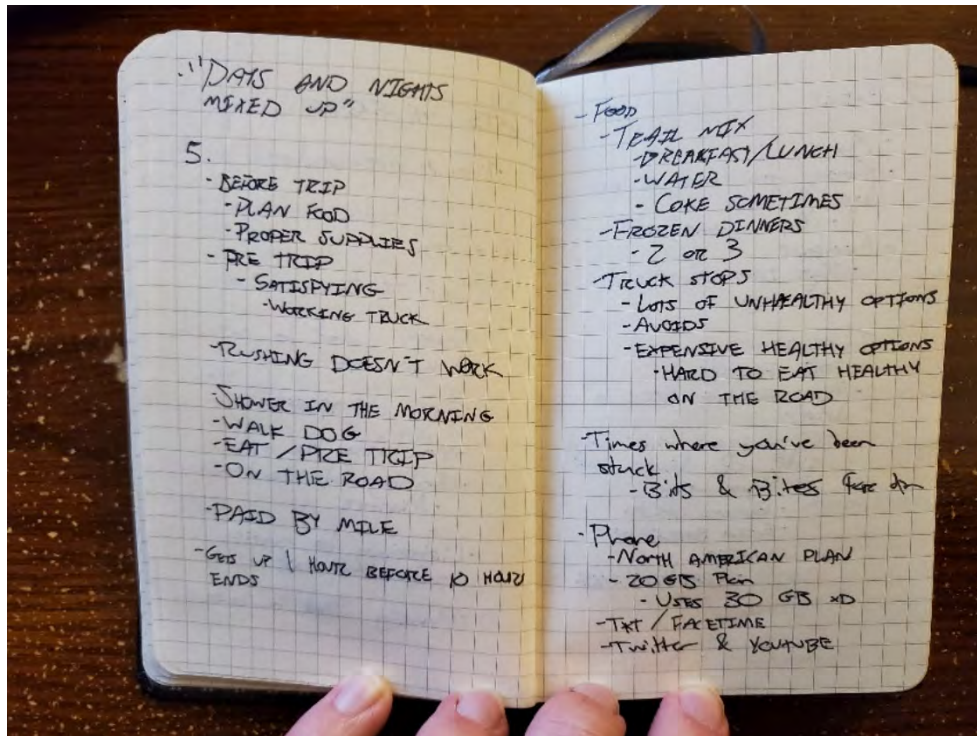 ."DAYS AND NIGHTS
MIXED UP"
5.
- BEFORE TRIP
- PLAN FOOD
- PROPER SUPPLIES
- PRE TRIP
- SATISFYING
- WORKING TRUCK
- RUSHING DOESN'T WORK
- SHOWER IN THE MORNING
- WALK DOG
- EAT / PRE TRIP
- ON THE ROAD
- PAID BY MILE
- GETS UP 1 HOUR BEFORE 10 HOUR
ENDS
- FOOD
- TRAIL MIX
- BREAKFAST/LUNCH
- WATER
- COKE SOMETIMES
- FROZEN DINNERS
- 2 OR 3
- TRUCK STOPS
- LOTS OF UNHEALTHY OPTIONS
- AVOIDS
- EXPENSIVE HEALTHY OPTIONS
- HARD TO EAT HEALTHY
ON THE ROAD
- Times where you've been
stuck
- Bits & Bites for
- Phone
- NORTH AMERICAN PLAN
- 20 GB Plan
- USES 30 GB xD
- TXT / FACETIME
- Twitter & YOUTUBE